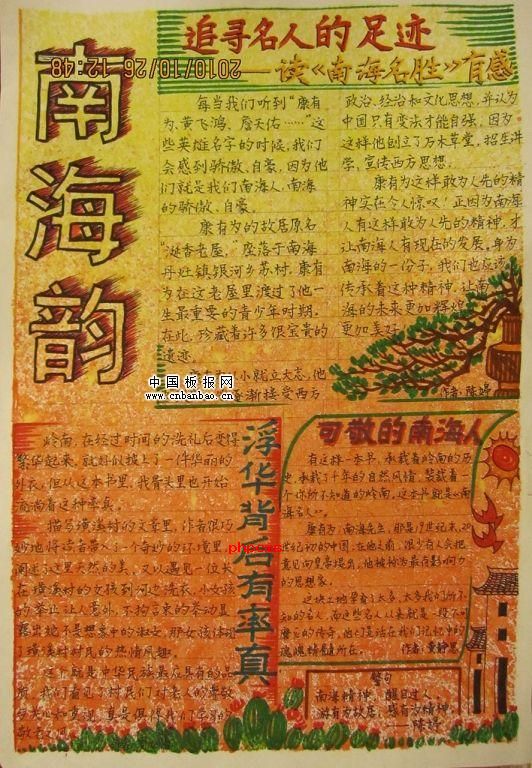 南海韵
追寻名人的足迹
——读《南海名胜》有感
2010/10/26 12:48
每当我们听到“康有
为、黄飞鸿、詹天佑……”这
些英雄名字的时候，我们
会感到骄傲，自豪，因为他
们就是我们南海人，南海
的骄傲、自豪。
康有为的故居原名
“涎香老屋”，坐落于南海
丹灶镇银河乡苏村，康有
为在这老屋里渡过了他一
生最重要的青少年时期。
在此，珍藏着许多很宝贵的
遗迹。
小就立大志，他
渐接受西方
政治、经治和文化思想，并认为
中国只有变法才能自强，因为
这样他创立了万木草堂，招生讲
学，宣传西方思想。
康有为这样敢为人先的精
神实在令人惊叹！正因为南海
人有这样敢为人先的精神，才
让南海人有现在的发展，身为
南海的一份子，我们也应该
传承着这种精神，让南
海的未来更加辉煌
更加美好
作者：陈婷
中国板报网
www.cnbanbao.cn
浮华背后有率真
岭南，在经过时间的洗礼后变得
繁华起来，就好似披上了一件华丽的
外衣，但从这本书里，我骨头里也开始
流淌着这种率真。
描写璜溪村的文章里，作者很巧
妙地将读者带入了一个奇妙的环境里，
这里天然的美，又以遇见一位长
在璜溪村的女孩到河边洗衣，小女孩
的举止让人意外，不拘言束的举动显
露出她不是想象中的淑女，那女孩体现
了璜溪村村民的热情风趣。
这个就是中华民族最应具有的品
质，我们看见了村民们对老人的尊敬
与关心和直视，真是值得我们学习的
敬老之
phpcms
可敬的南海人
有这样一本书，承载着岭南的历
史，承载了千年的自然风情，装载着一
个你所不知道的岭南，这本书就是《南
海名人》。
康有为，南海先生，那是19世纪末，20
世纪初的中国，在他之前，很少有人会把
意见向皇帝提出，他被称为最有影响力
的思想家。
这块土地里有了太多、太多我们所不
知的名人，南这些名人以来就是一段不可
磨灭的传奇，他们是活在我们记忆中的
瑰魄精髓所在。
作者：黄静思
警句
南海精神，醒目过人，
游有为故居，感有为精神。
——陈婷